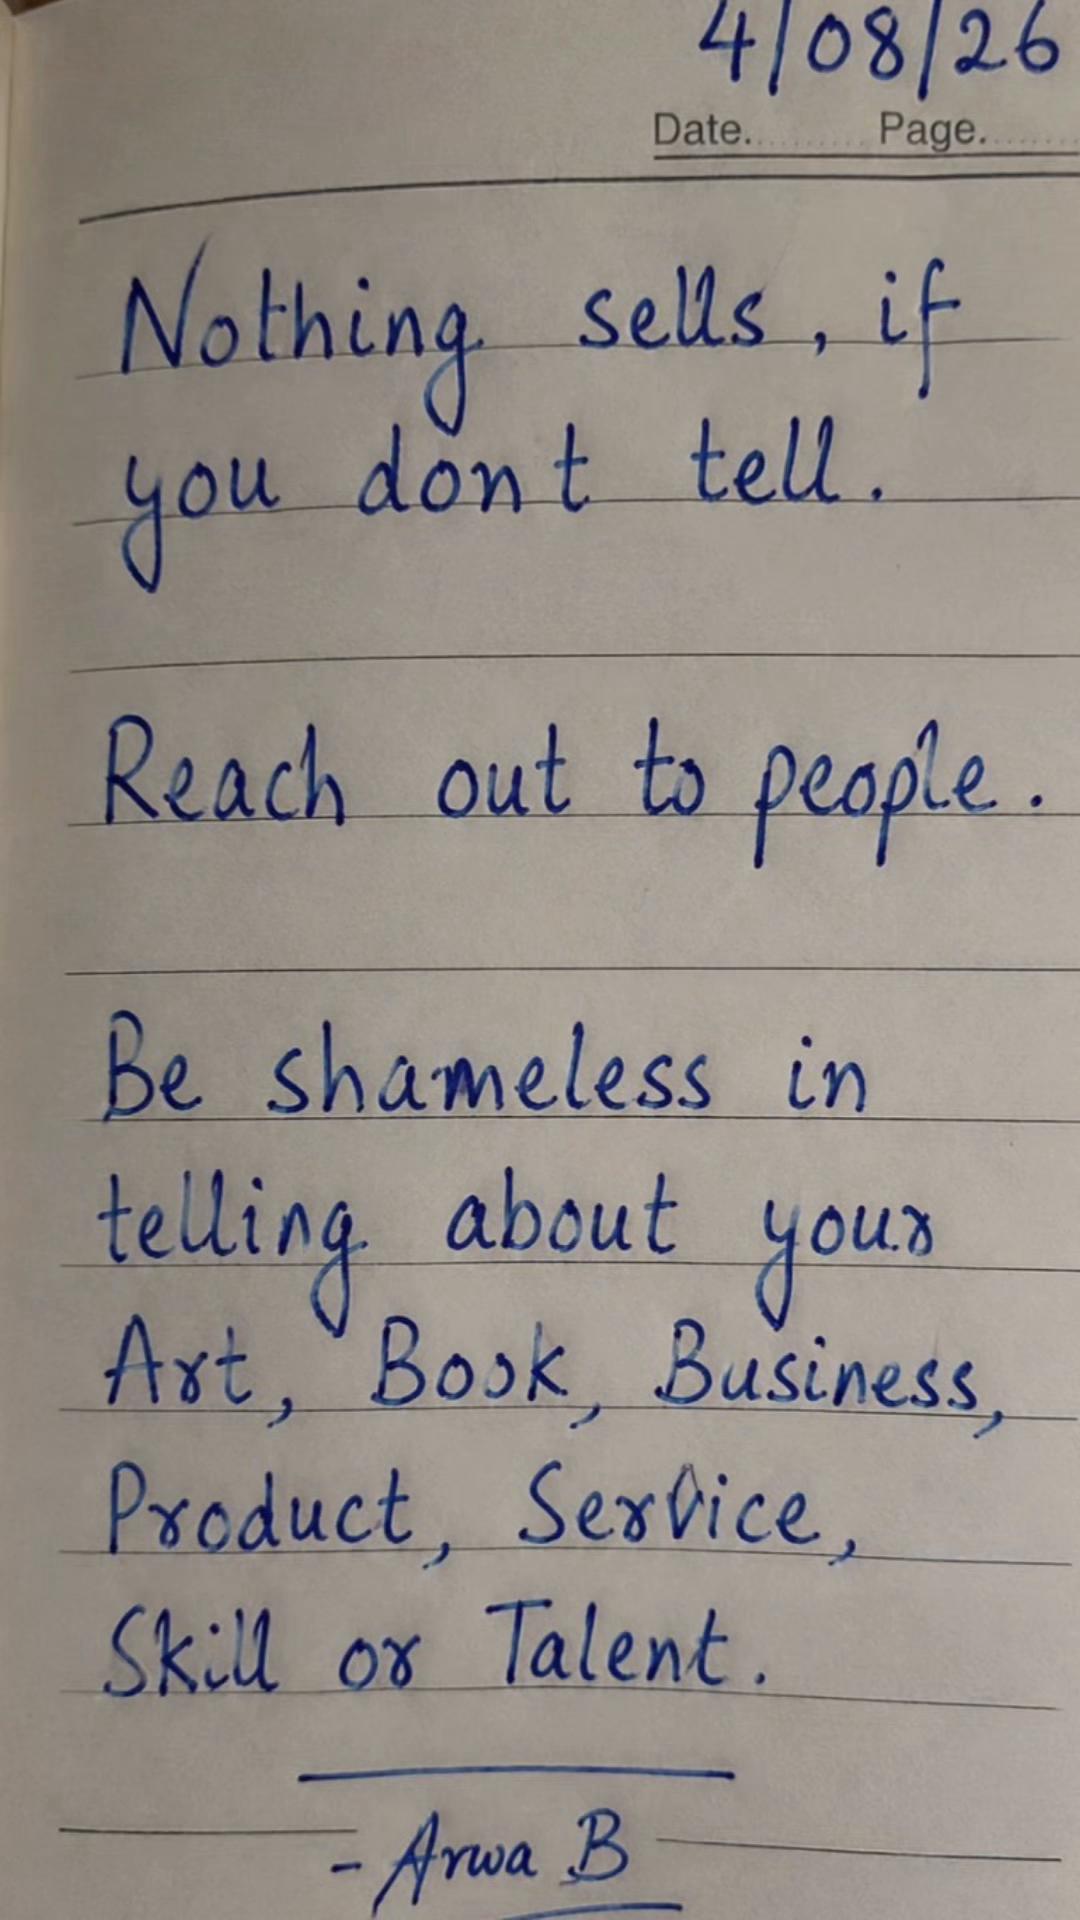 4/08/26
Date.......... Page.......
Nothing sells, if
you dont tell.
Reach out to people.
Be shameless in
telling about your
Art, Book, Business,
Product, Service,
Skill or Talent.
- Arwa B